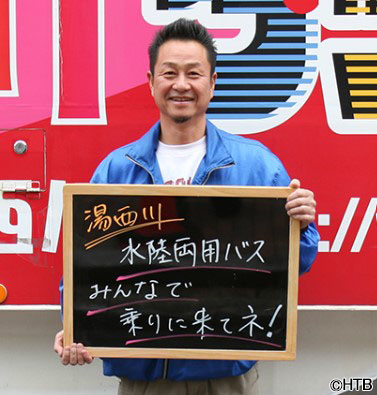 湯西川
水陸両用バス
みんなで
乗りに来てネ!
©HTB